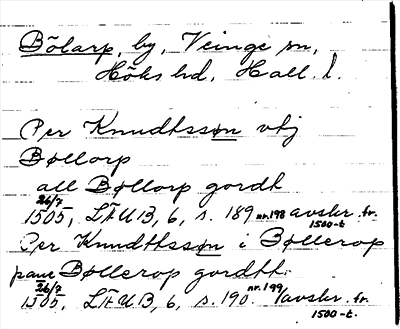 Bölarp, by, Veinge sn,
Höks hd, Hall. l.
Per Knudtssøn vtj
Bøllorp
all Bøllorp gordt
26/7 1505, LÄUB, 6, s. 189 nr. 198 avskr. fr. 1500-t
Per Knudthssøn i Bøllerop
paa Bøllerop gordtt
26/7 1505, LÄUB, 6, s. 190 nr. 199 avskr. fr. 1500-t.